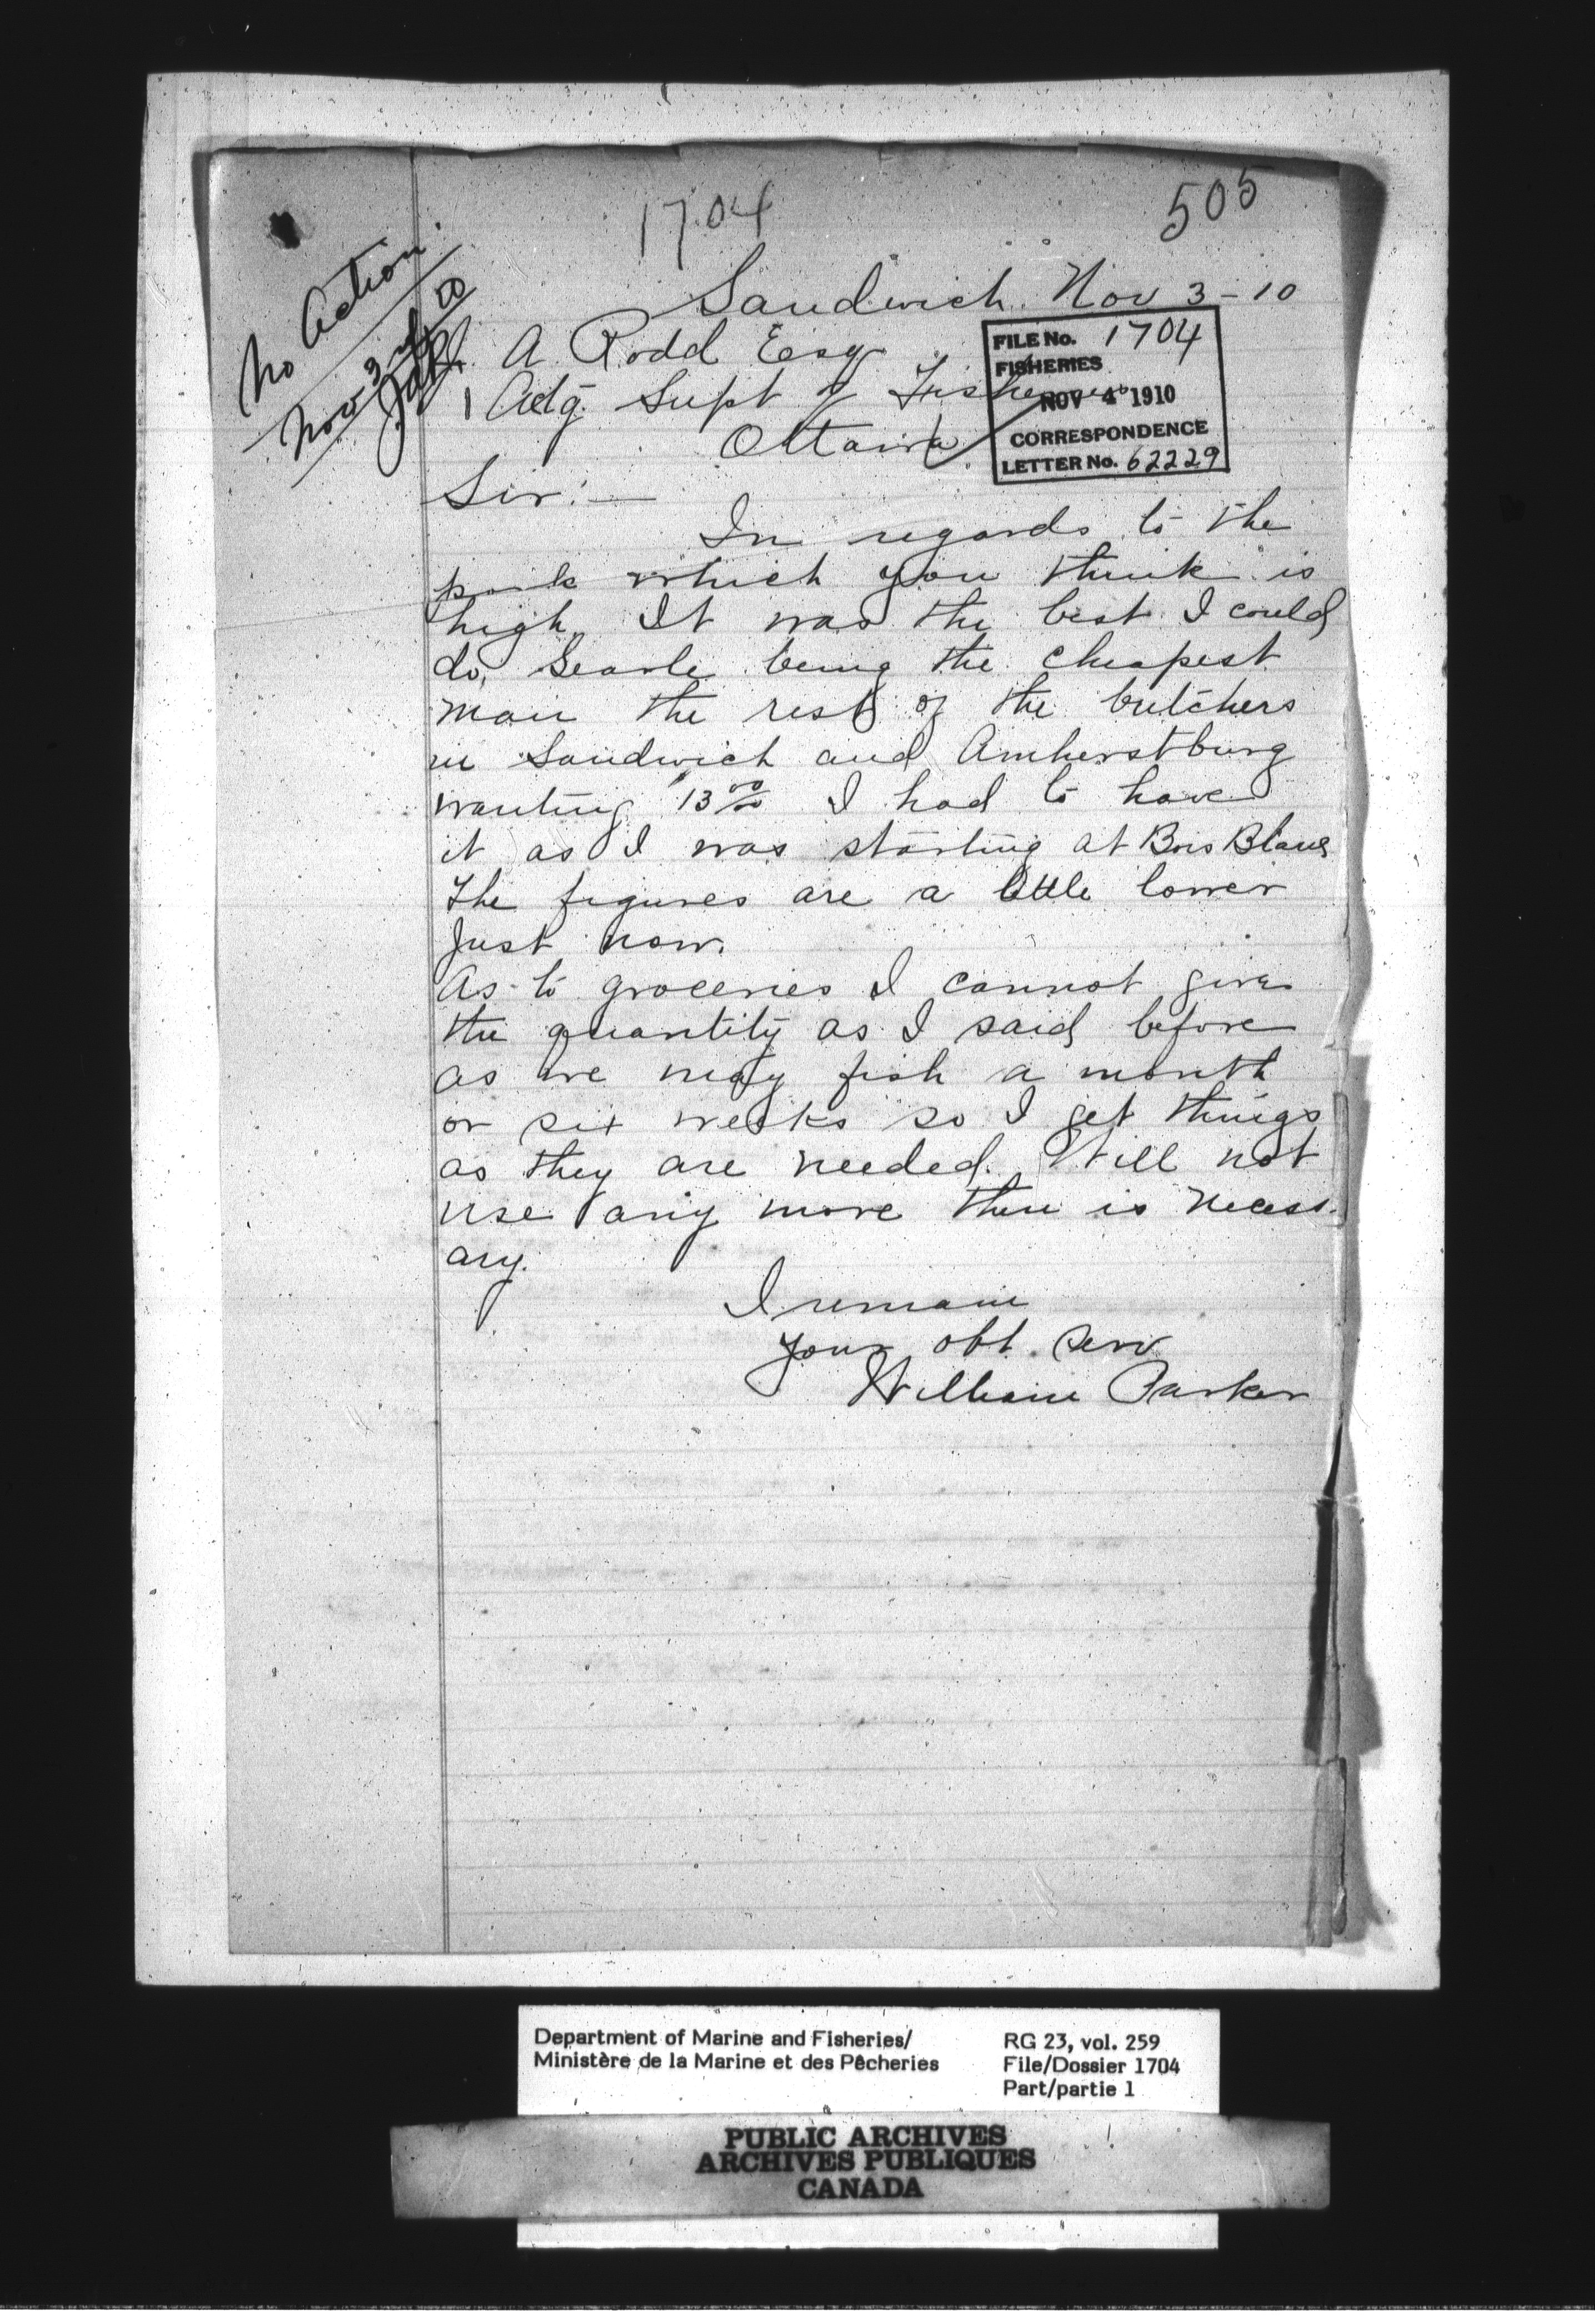 1704
505
No Action
Nov 3rd 10
Sandwich Nov 3-10
A Rodd Esq
Actg. Supt of Fisheries
Ottawa
FILE No. 1704
FISHERIES
NOV 4 1910
CORRESPONDENCE
LETTER No. 62229
Sir:—
In regards to the
pork which you think is
high. It was the best I could
do, Searle being the cheapest
man the rest of the butchers
in Sandwich and Amherstburg
wanting 13 00 I had to have
it as I was starting at Bois Blanc
The figures are a little lower
Just now.
As to groceries I cannot give
the quantity as I said before
as we may fish a month
or six weeks so I get things
as they are needed. Will not
use any more then is necess-
ary.
I remain
your obt. serv
William Parker
Department of Marine and Fisheries/
Ministère de la Marine et des Pêcheries
RG 23, vol. 259
File/Dossier 1704
Part/partie 1
PUBLIC ARCHIVES
ARCHIVES PUBLIQUES
CANADA